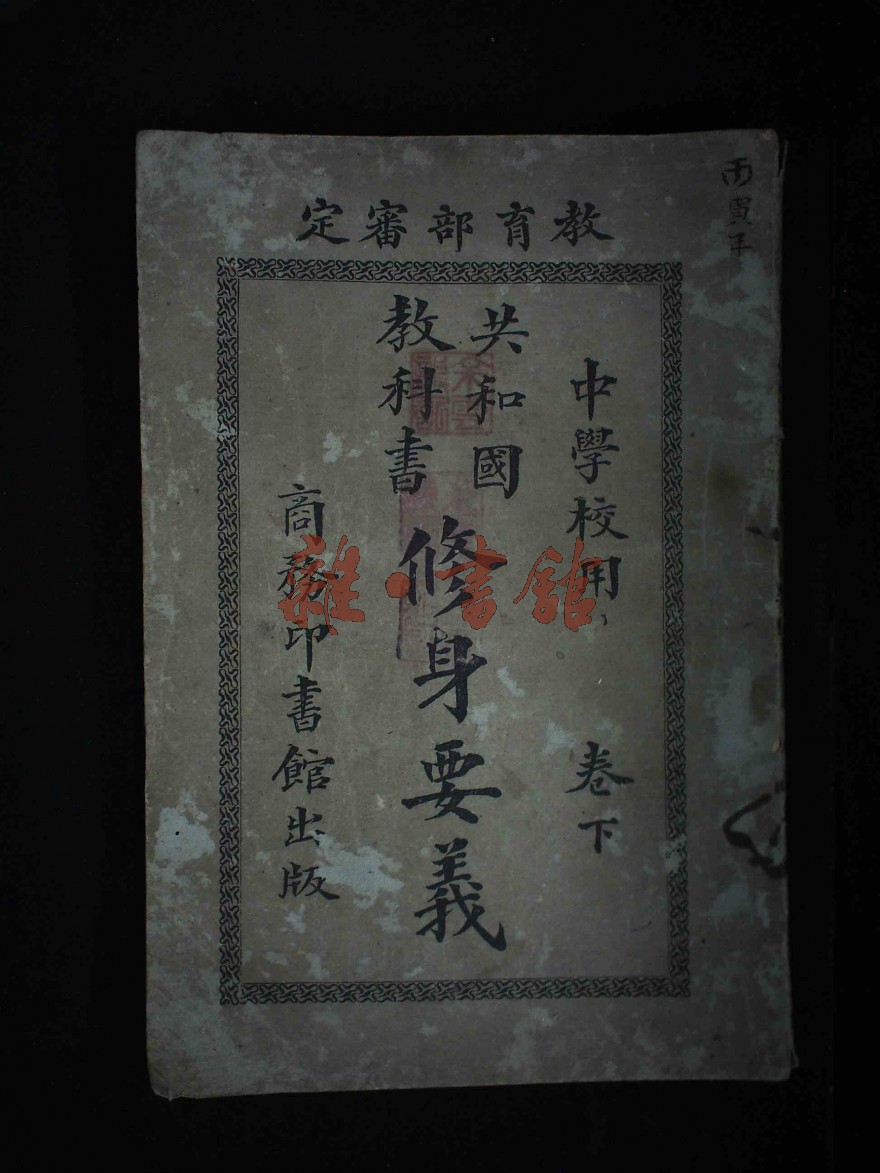 教育部審定
丙寅年
中學校用 卷下
共和國
教科書
修身要義
商務印書館出版
雜·書館